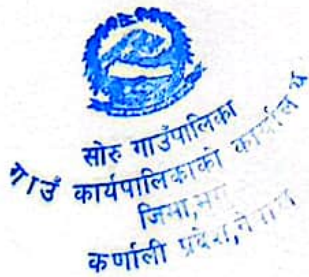 सोरु गाउँपालिका
गाउँ कार्यपालिकाको कार्यालय
जिमा,मुगु
कर्णाली प्रदेश,नेपाल